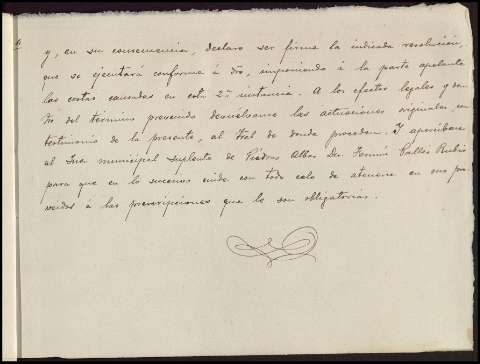 y, en su consecuencia, declaro ser firme la indicada resolución,
que se ejecutará conforme á dro, imponiendo á la parte apelante
las costas causadas en esta 2ª instancia. A los efectos legales y den-
tro del término prevenido devuelvanse las actuaciones originales con
testimonio de la presente, al tral de donde proceden. Y apercíbase
al Juez municipal suplente de Piedras Albas Dn Fermín Rubio
para que en lo sucesivo cuide con todo celo de atenerse en sus pro-
veidos á las prescripciones que le son obligatorias.